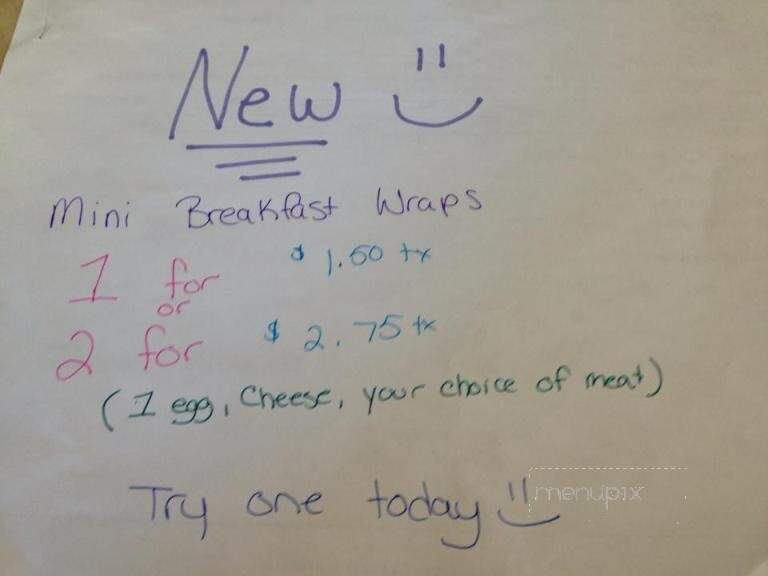 New
Mini Breakfast Wraps
1 for $ 1.50 tx
or
2 for $ 2.75 tx
(1 egg, Cheese, your choice of meat)
Try one today
menupix